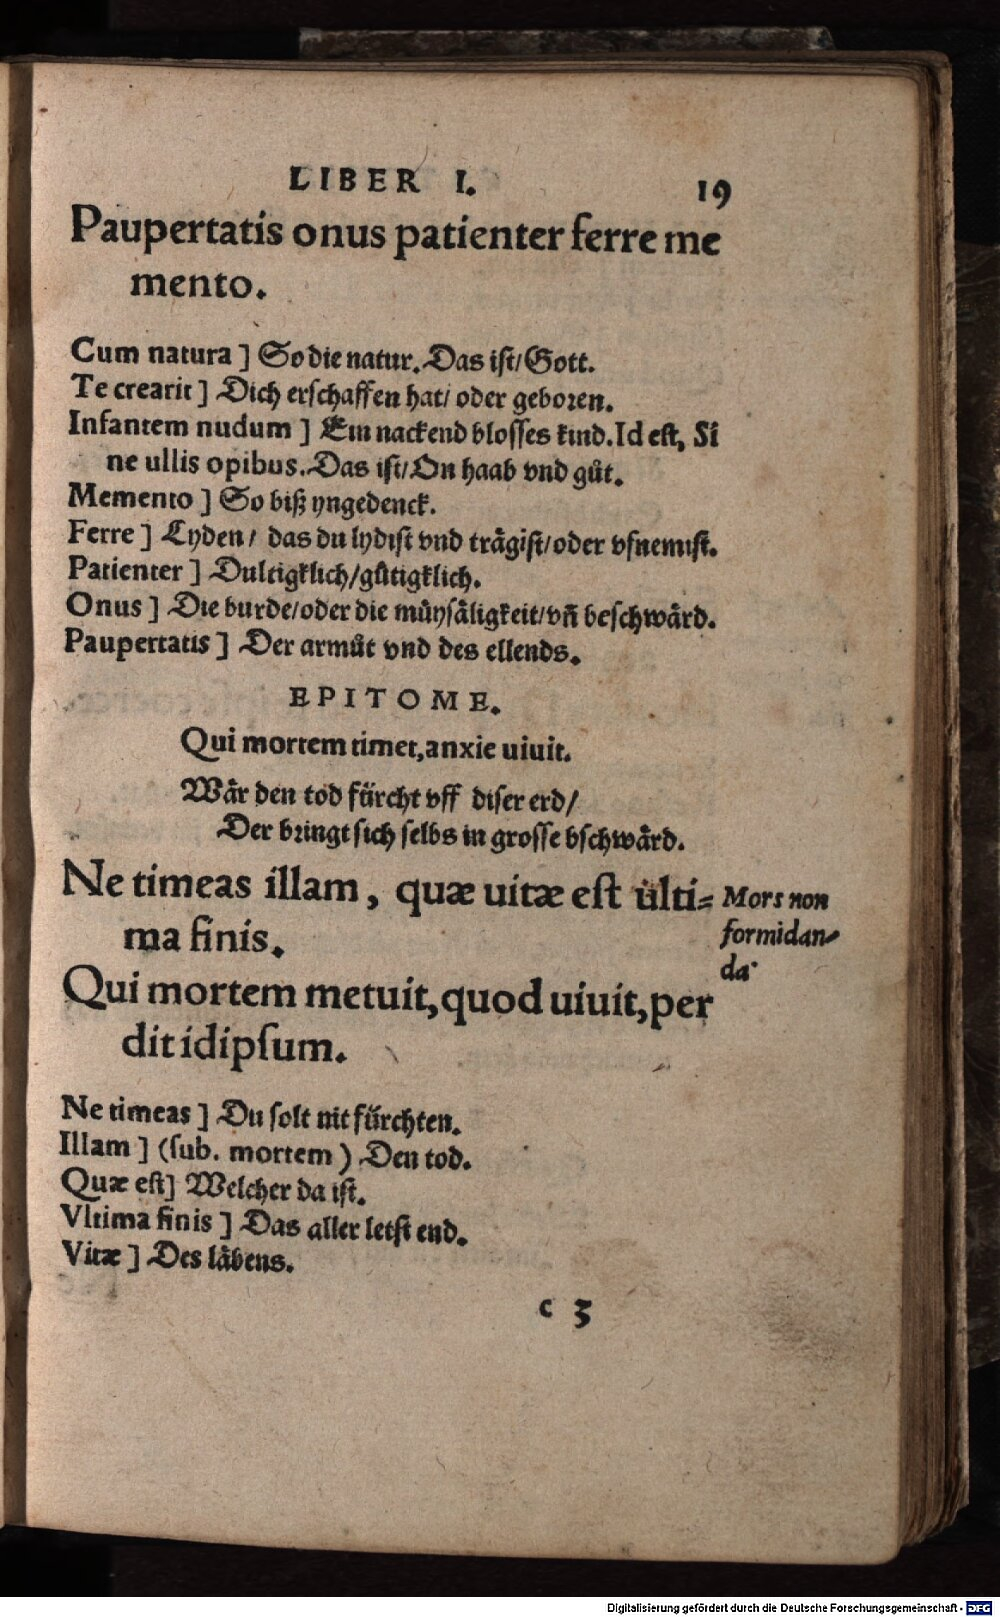 LIBER I. 19
Paupertatis onus patienter ferre me
mento.
Cum natura ] So die natur. Das ist/ Gott.
Te crearit ] Dich erschaffen hat/ oder geboren.
Infantem nudum ] Ein nackend blosses kind. Id est, Si
ne ullis opibus. Das ist/ On haab vnd gůt.
Memento ] So biß yngedenck.
Ferre ] Lyden/ das du lydist vnd trägist/ oder vfnemist.
Patienter ] Dultigklich/ gůtigklich.
Onus ] Die burde/ oder die můysäligkeit/ vñ beschwärd.
Paupertatis ] Der armůt vnd des ellends.
EPITOME.
Qui mortem timet, anxie uiuit.
Wär den tod fürcht vff diser erd/
Der bringt sich selbs in grosse bschwärd.
Ne timeas illam, quæ uitæ est ulti=
ma finis.
Qui mortem metuit, quod uiuit, per
dit idipsum.
Mors non
formidan-
da.
Ne timeas ] Du solt nit fürchten.
Illam ] (sub. mortem ) Den tod.
Quæ est] Welcher da ist.
Vltima finis ] Das aller letst end.
Vitæ ] Des läbens.
c 3
Digitalisierung gefördert durch die Deutsche Forschungsgemeinschaft - DFG